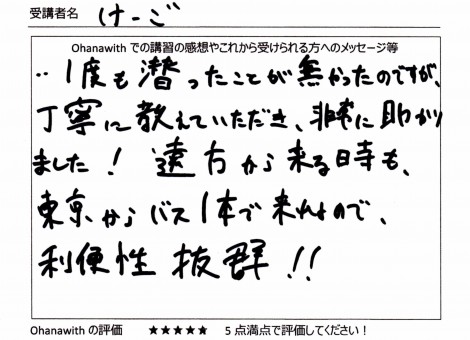 受講者名 けーご
Ohanawith での講習の感想やこれから受けられる方へのメッセージ等
‥ 1度も潜ったことが無かったのですが、
丁寧に教えていただき、非常に助かり
ました！ 遠方から来る時も、
東京からバス1本で来れるので、
利便性抜群!!
Ohanawith の評価 ★★★★★ 5点満点で評価してください！